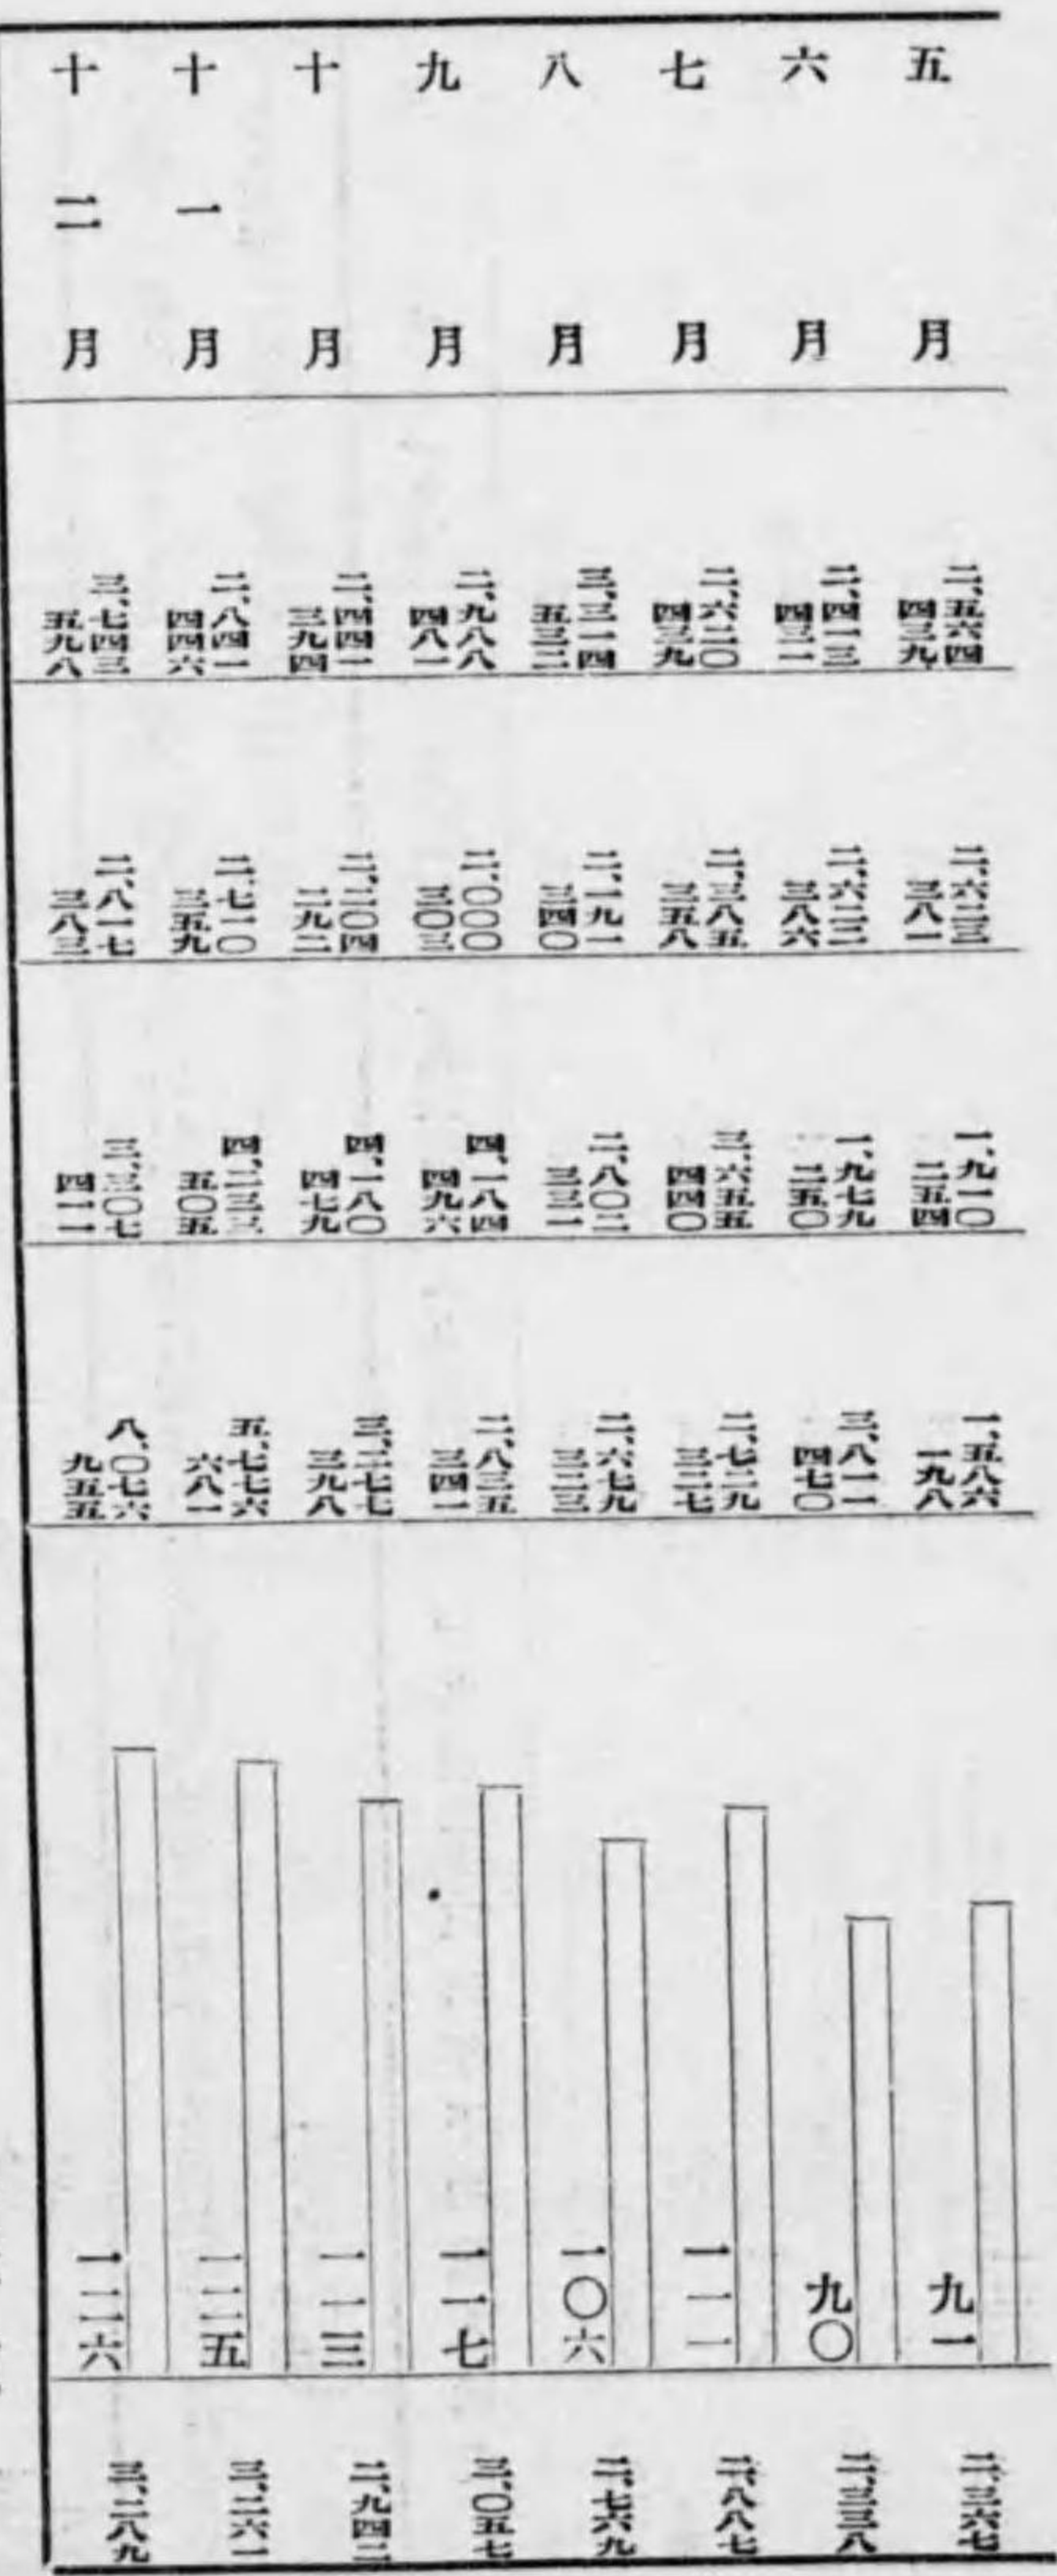 五月
二、五六四
四三九
二、六二三
三八一
一、九一〇
二五四
一、五八六
一九八
九一
二、三六七
六月
二、四一三
四三一
二、六二二
三八六
一、九七九
二五〇
三、八一一
四七〇
九〇
二、三三八
七月
二、六二〇
四三九
二、三八五
三五八
三、六五五
四四〇
二、七二九
三二七
一一一
二、八八七
八月
三、三一四
五三二
二、一九一
三四〇
二、八〇二
三三一
二、六七九
三二三
一〇六
二、七六九
九月
二、九八八
四八一
二、〇〇〇
三〇三
四、一八四
四九六
二、八三五
三四一
一一七
三、〇五七
十月
二、四四一
三九四
二、二〇四
二九二
四、一八〇
四七九
三、二七七
三九八
一一三
二、九四二
十一月
二、八四一
四四六
二、七一〇
三五九
四、二三三
五〇五
五、七七六
六八一
一二五
三、二六一
十二月
三、七四三
五九八
二、八一七
三八三
三、三〇七
四一一
八、〇七六
九五五
一二六
三、二八九